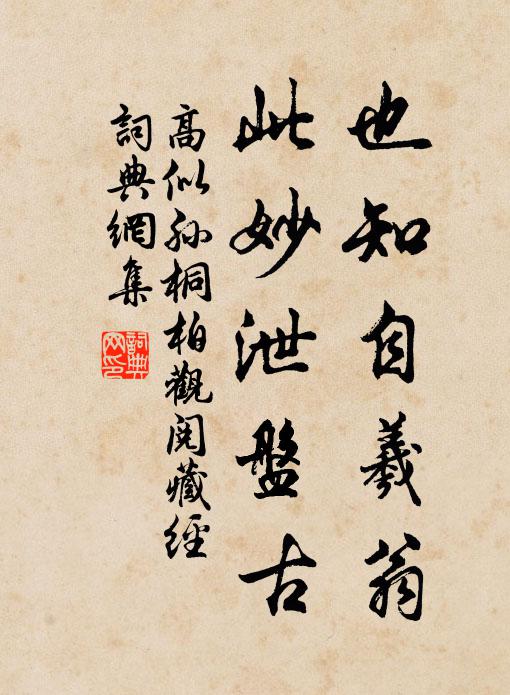 也知自羲翁
此妙泄盤古
高似孙桐柏觀閱藏經
詞典網集
詞典网印